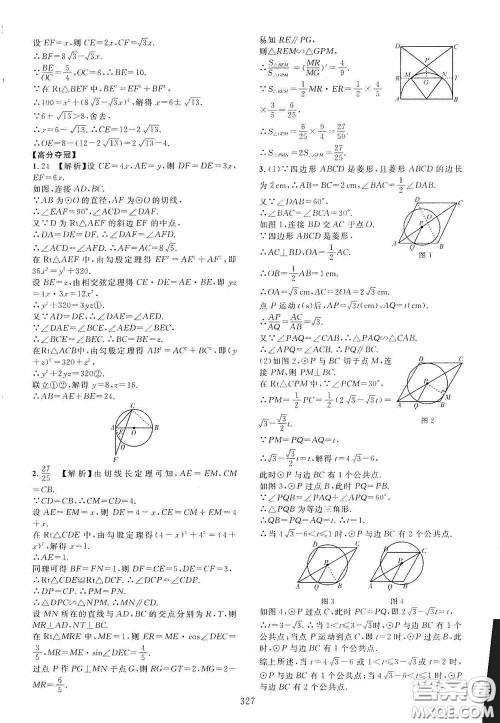 设 EF=x,则 CE=2x,CF=√3x.
∴OE=8√3-√3x.
∵BE/OC=5/4,OC=8,∴BE=10.
∵在 Rt△BEF 中,BE²=EF²+BF²,
∴100=x²+(8√3-√3x)²,解得 x=6±√13.
∵6+√13>8,舍去,
∴x=6-√13,∴CE=12-2√13.
∴OE=8-(12-2√13)=2√13-4.
【高分夺冠】
1.24 【解析】设 CE=4x,AE=y,则 DF=DE=3x,
EF=6x.
如图,连接 AD,BC.
∵AB 为⊙O 的直径,AF 为⊙O 的切线,
∴∠EAF=90°,∠ACD=∠DAF.
又∵D 为 Rt△AEF 的斜边 EF 的中点,
∴DA=DE=DF,∴∠DAF=∠AFD.
∴∠ACD=∠AFD.∴AF=AC=8√5.
在 Rt△AEF 中,由勾股定理得 EF²=AE²+AF²,即
36x²=y²+320.
设 BE=z,由相交弦定理得 CE·DE=AE·BE,即 yz
=4x·3x=12x².
∴y²+320=3yz①.
又∵AD=DE,∴∠DAE=∠AED.
又∵∠DAE=∠BCE,∠AED=∠BEC,
∴∠BCE=∠BEC.∴BC=BE=z.
在 Rt△ACB中,由勾股定理得 AB²=AC²+BC²,即(y
+z)²=320+z²,
∴y²+2yz=320②.
联立①②,解得 y=8,z=16.
∴AB=AE+BE=24.
2.27/25 【解析】由切线长定理可知,AE=EM,CM
=CB.
∵CD=CB,∴CM=CD.
设 AE=x,则 DE=4-x,CE=CM+EM=4+x.
在 Rt△CDE 中,由勾股定理得(4-x)²+4²=(4+
x)²,解得 x=1.
∴AE=EM=1.
同理可得 BF=FN=1,则 DE=CF=5,DE=CF=3.
∴Rt△CDE≌Rt△DCF.∴∠DEC=∠CFD.
∴DP=CP.
∴△DPC∽△PMN.
设 MN 所在的直线与 AD,BC 的交点分别为 R,T,则
MR⊥AD,NT⊥BC.
在 Rt△MRE 中,ME=1,则 ER=ME·cos∠DEC=
3/5,MR=ME·sin∠DEC=4/5.
过点 P 作 PG⊥MN 于点 G,则 RG=GT=2,MG=2-
MR=6/5.
易知 RE∥PG,
则△REM∽△GPM,
∴S△REM/S△GPM=(MR/MG)²=4/9.
∵S△REM=1/2MR·ER=1/2×4/5
×3/5=6/25,
∴S△GPM=6/25×9/4=27/50.
∴S△PMN=2S△GPM=27/25.
3.(1)∵四边形 ABCD 是菱形,且菱形 ABCD 的边长
为 2cm,
∴AB=BC=2cm,∠BAC=1/2∠DAB.
又∵∠DAB=60°,∴∠BAC=30°.
如图 1,连接 BD 交 AC 于点 O.
∵四边形 ABCD 是菱形,
∴AC⊥BD,OA=1/2AC.
∴OB=1/2AB=1cm.
∴OA=√3cm,AC=2OA=2√3cm.
点 P 运动 t(s)后,AP=√3t(cm),AQ=t(cm),
∴AP/AQ=AC/AB=√3.
又∵∠PAQ=∠CAB,∴△PAQ∽△CAB.
∴∠APQ=∠ACB.∴PQ∥BC.
(2)如图 2,⊙P 与 BC 切于点 M,连
接 PM,则 PM⊥BC.
在 Rt△CPM 中,∵∠PCM=30°,
∴PM=1/2PC=√3-√3/2t.
∵PM=PQ=AQ=t,
∴√3-√3/2t=t,解得 t=4√3-6,
此时⊙P 与边 BC 有 1 个公共点.
如图 3,⊙P 过点 B,此时 PQ=PB.
∵∠PQB=∠PAQ+∠APQ=60°,
∴△PQB 为等边三角形.
∴BQ=PQ=AQ=t.∴t=1.
∴当 4√3-6<t≤1 时,⊙P 与边 BC 有 2 个公共点.
如图 4,⊙P 过点 C,此时 PC=PQ,即 2√3-√3t=t,
∴t=3-√3.
∴当 1<t≤3-√3时,⊙P 与边 BC 有 1 个
公共点;当点 P 运动到点 C,即 t=2 时,⊙P 过点 B,此
时⊙P 与边 BC 有 1 个公共点.
综上所述,当 t=4√3-6 或 1<t≤3-√3或 t=2 时,
⊙P 与边 BC 有 1 个公共点;当 4√3-6<t≤1 时,⊙P
与边 BC 有 2 个公共点.
图 1
图 2
图 3
图 4
327
答案圈
MXQE.COM